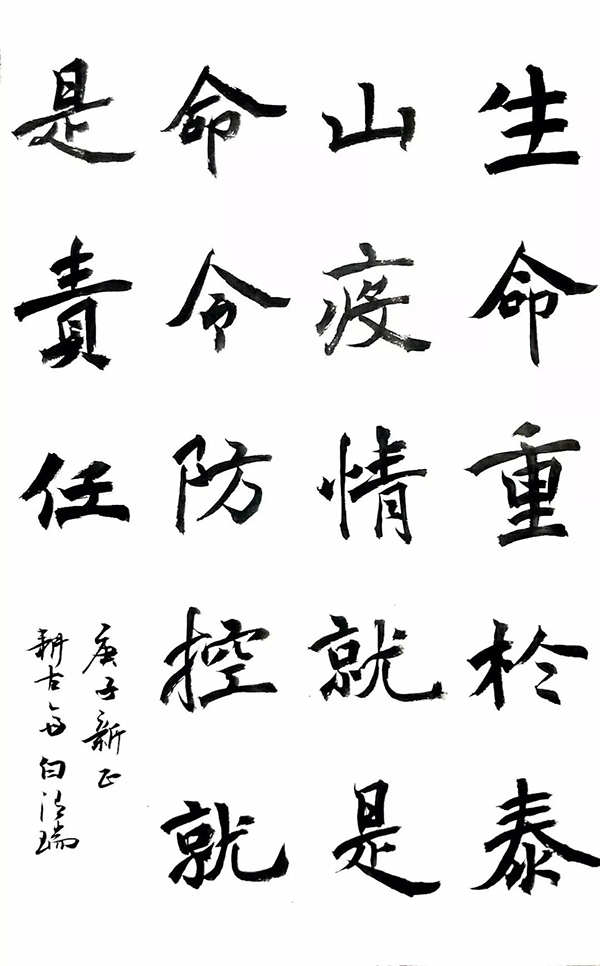 生命重於泰
山疫情就是
命令防控就
是責任
庚子新正
耕古 白 瑞